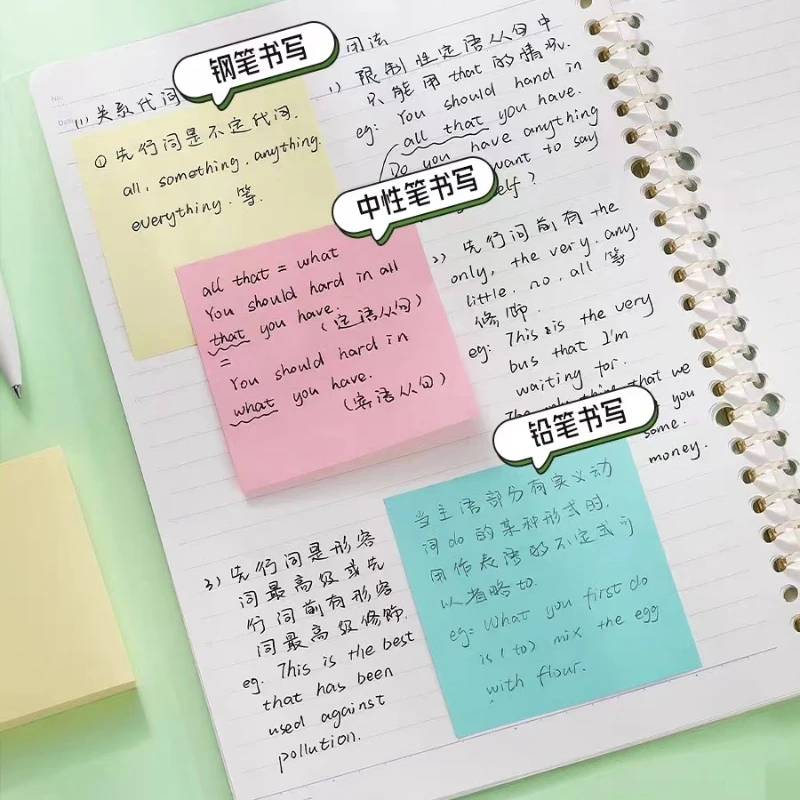 钢笔书写
(1) 关系代词
① 先行词是不定代词.
all, something, anything.
everything. 等.
中性笔书写
all that = what
You should hard in all
that you have.
(定语从句)
=
You should hard in
what you have.
(宾语从句)
3) 先行词是形容
词最高级或先
行词前有形容
词最高级修饰.
eg. This is the best
that has been
used against
pollution.
用法
1) 限制性定语从句中
只能用that的情况.
eg: You should hand in
all that you have.
Do you have anything
want to say
self?
2) 先行词前有the
only, the very, any.
little, no, all 等
修饰.
eg: This is the very
bus that I'm
waiting for.
that we
you
some.
money.
铅笔书写
当主语部分有实义动
词do的某种形式时.
用作表语的不定式可
以省略to.
eg: What you first do
is (to) mix the egg
with flour.